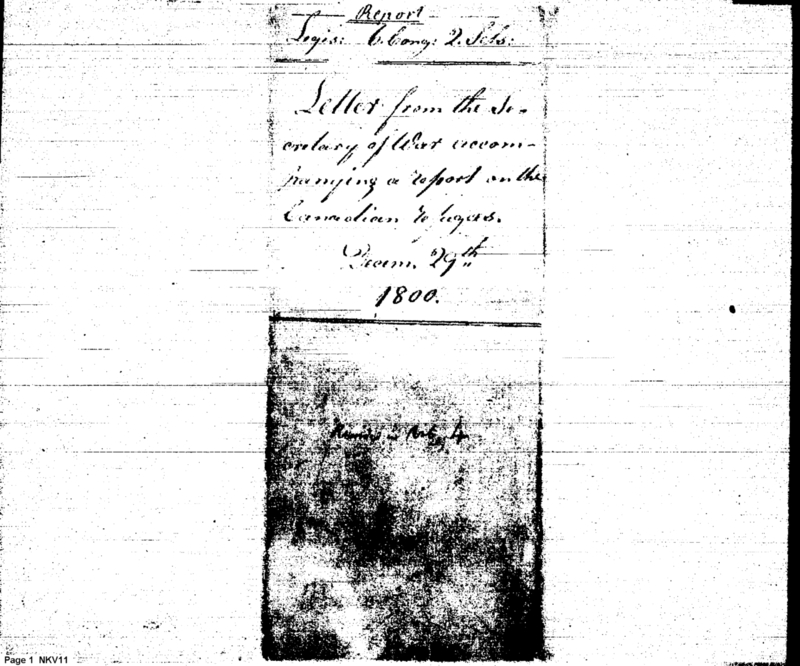 Report
Legis: 6. Cong: 2. Sess:
Letter from the Se-
cretary of War accom-
panying a report on the
Canadian Refugees.
Decem. 29th
1800.
4
Page 1 NKV11